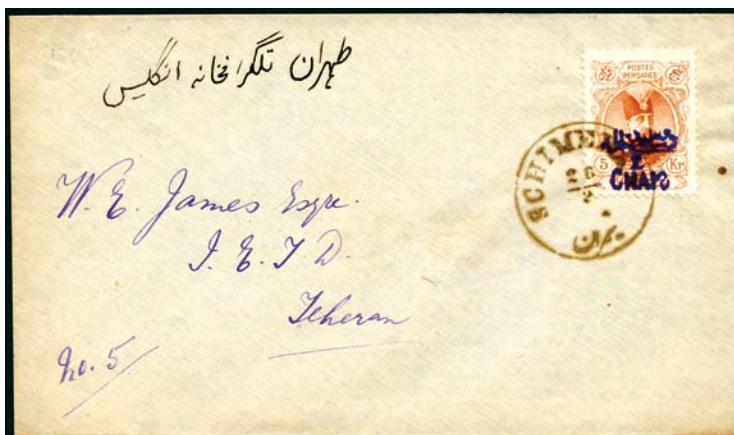 طهران تلگرافخانه انگلیس
POSTES
PERSANES
5 Kr.
2
CHAIS
SCHIMERAN
26
2
W. E. James Esqre.
I. E. T. D.
Teheran
No. 5